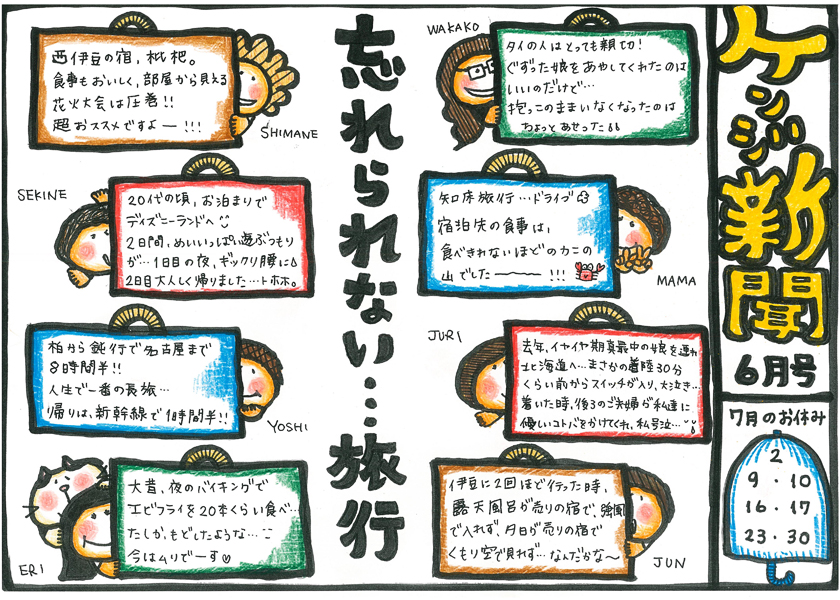 ケンジ新聞
6月号
7月のお休み
2
9・10
16・17
23・30
忘れられない…旅行
WAKAKO
タイの人はとっても親切!
ぐずった娘をあやしてくれたのは
いいのだけど…
抱っこのままいなくなったのは
ちょっとあせった
MAMA
知床旅行…ドライブ
宿泊先の食事は、
食べきれないほどのカニの
山でした———!!!
JURI
去年、イヤイヤ期真最中の娘を連れ
北海道へ…まさかの着陸30分
くらい前からスイッチが入り、大泣き…
着いた時、後ろのご夫婦が私達に
優しいコトバをかけてくれ、私号泣…
JUN
伊豆に2回ほど行った時、
露天風呂が売りの宿で、強風
で入れず、夕日が売りの宿で
くもり空で見れず…なんだかな〜
SHIMANE
西伊豆の宿、枇杷。
食事もおいしく、部屋から見える
花火大会は圧巻!!
超おススメですよー!!!
SEKINE
20代の頃、お泊まりで
ディズニーランドへ
2日間、めいいっぱい遊ぶつもり
が…1日目の夜、ギックリ腰に
2日目大人しく帰りました…トホホ。
YOSHI
柏から鈍行で名古屋まで
8時間半!!
人生で一番の長旅…
帰りは、新幹線で1時間半!!
ERI
大昔、夜のバイキングで
エビフライを20本くらい食べ…
たしか、もどしたような…
今はムリでーす♡